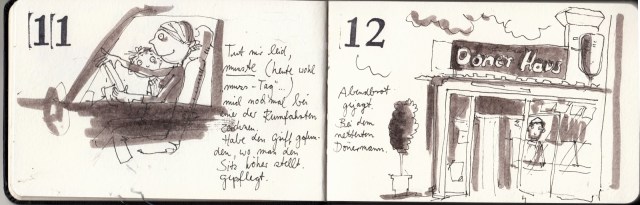 11
Tut mir leid,
musste (heute wohl
"muss-Tag"...)
mich noch mal bei
eine der
Habe den Griff gefun-
den, wo man den
Sitz höher stellt.
gepflegt.
12
Döner Haus
Abendbrot
gejagt.
Bei dem
nettesten
Dönermann.